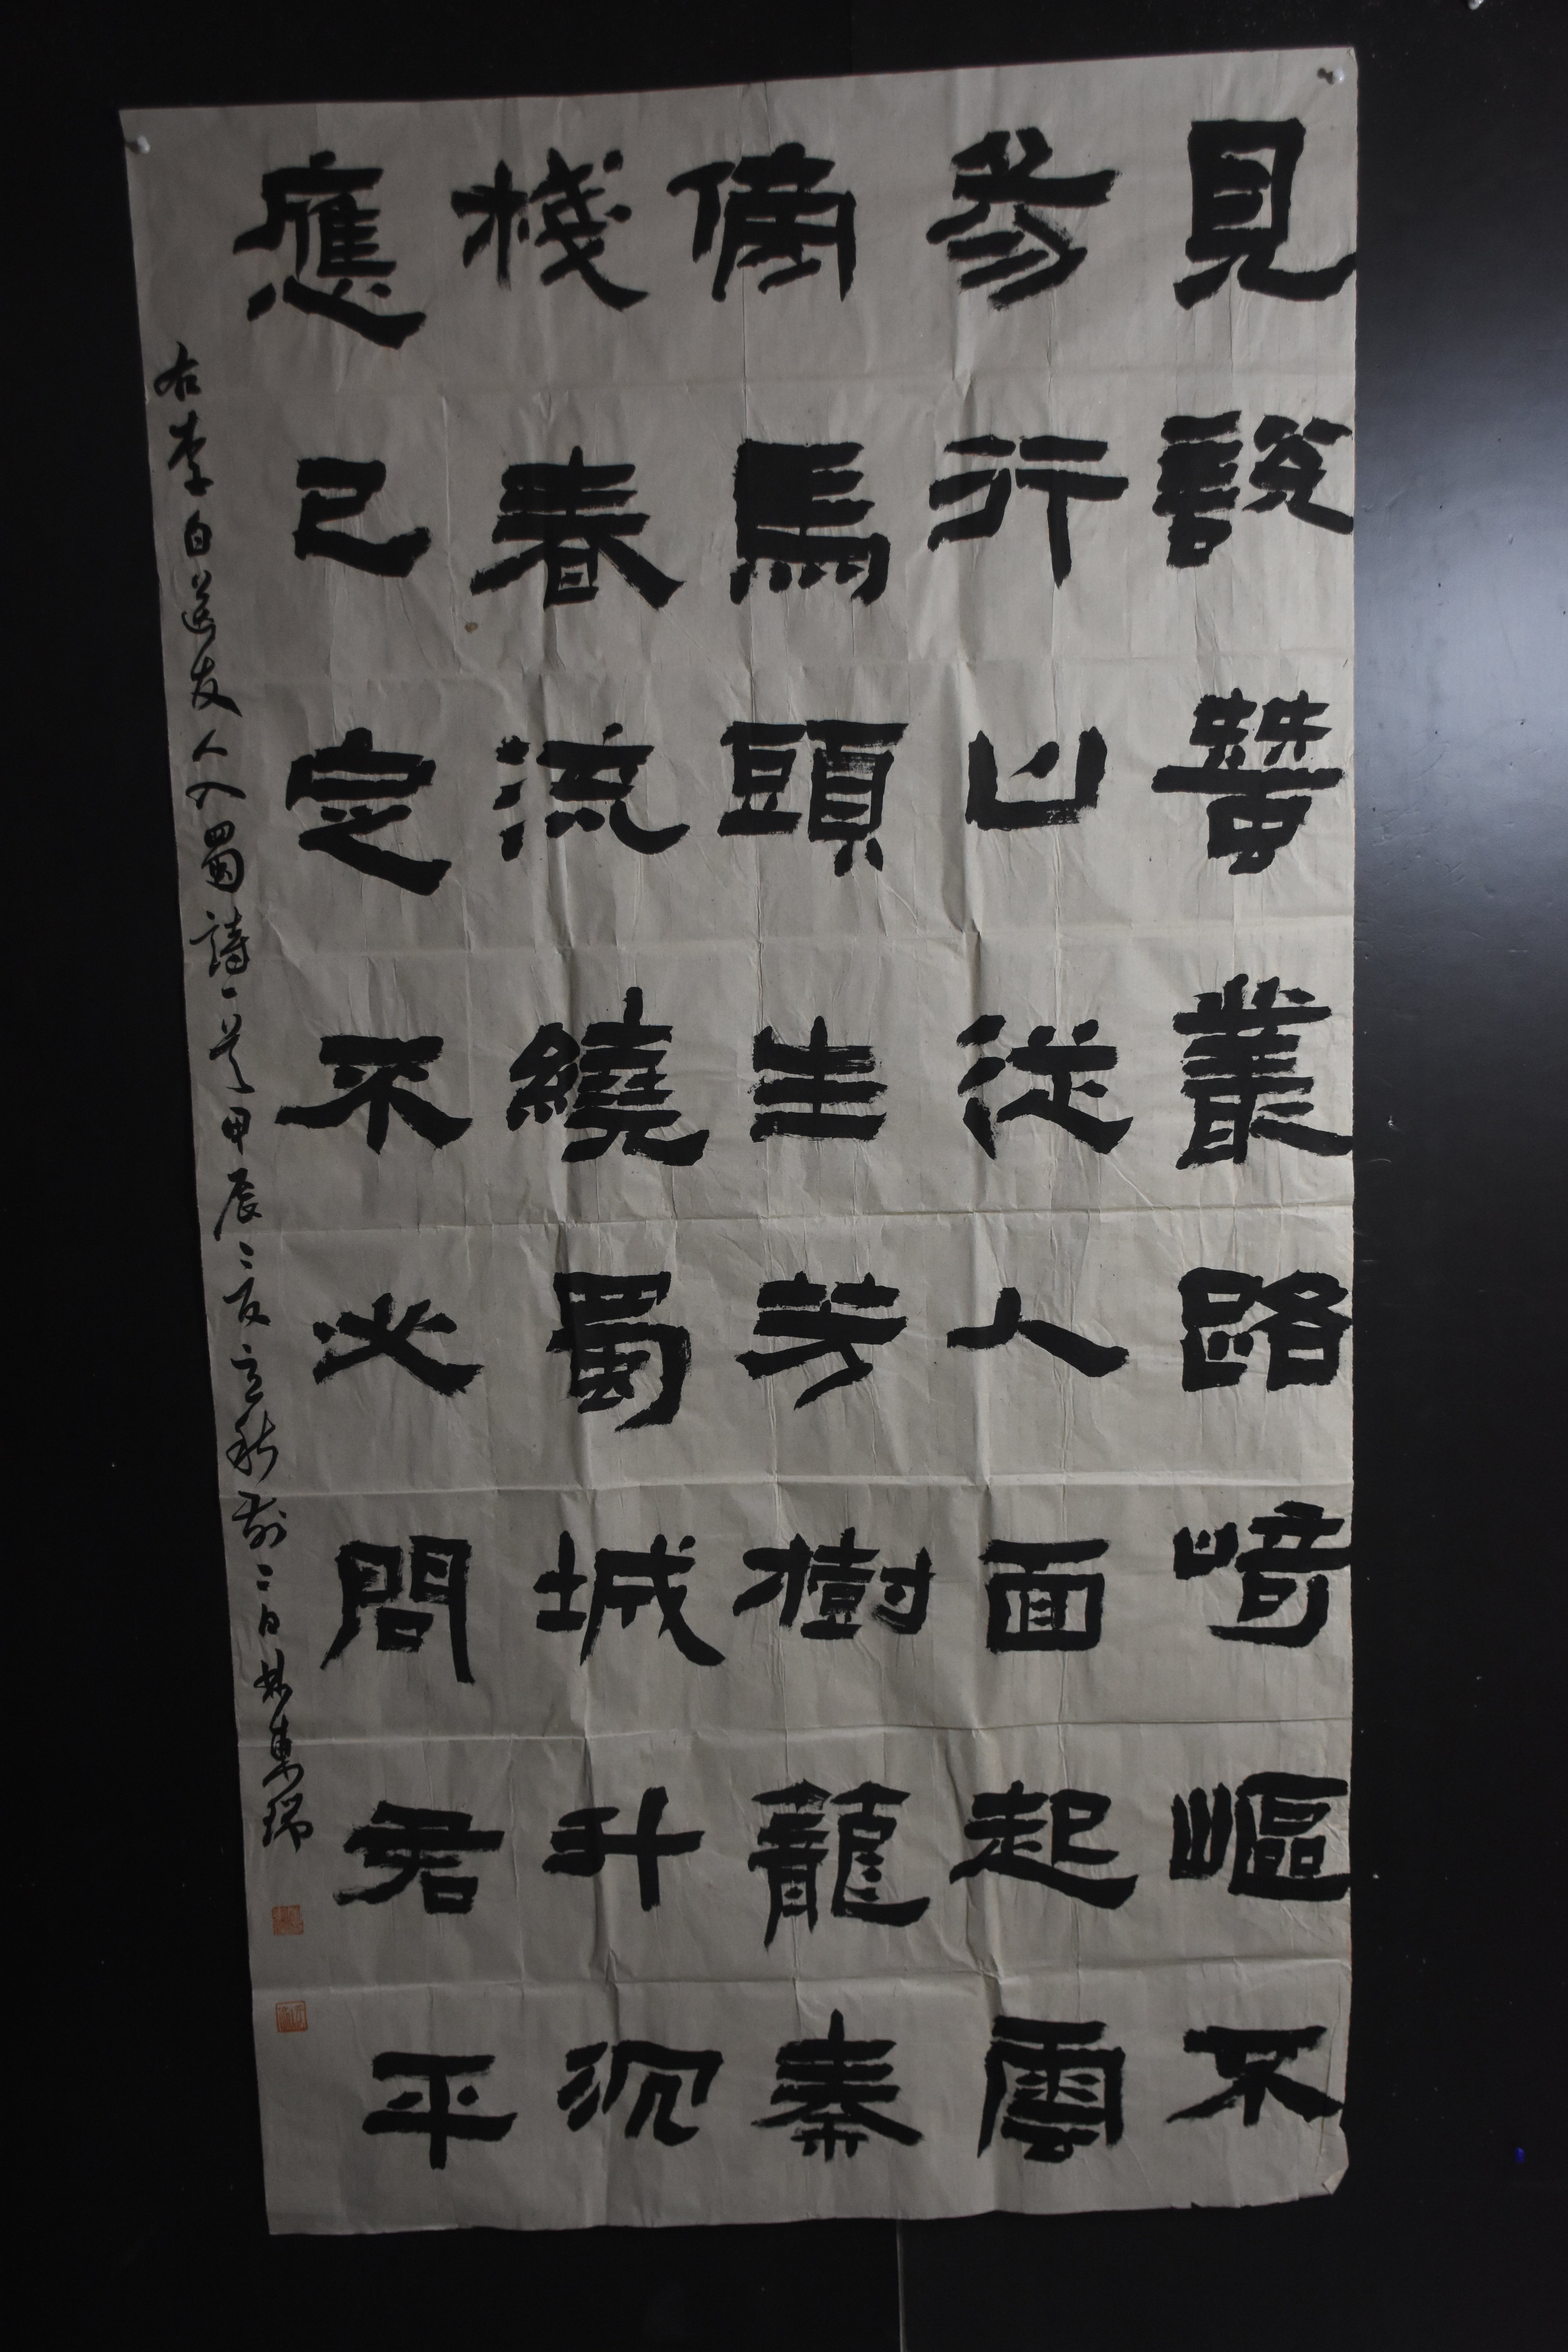 見說蠶叢路崎嶇不
易行山從人面起雲
傍馬頭生芳樹籠秦
棧春流繞蜀城升沉
應已定不必問君平
右李白送友人入蜀詩一首甲辰之夏立秋前二日林瑞